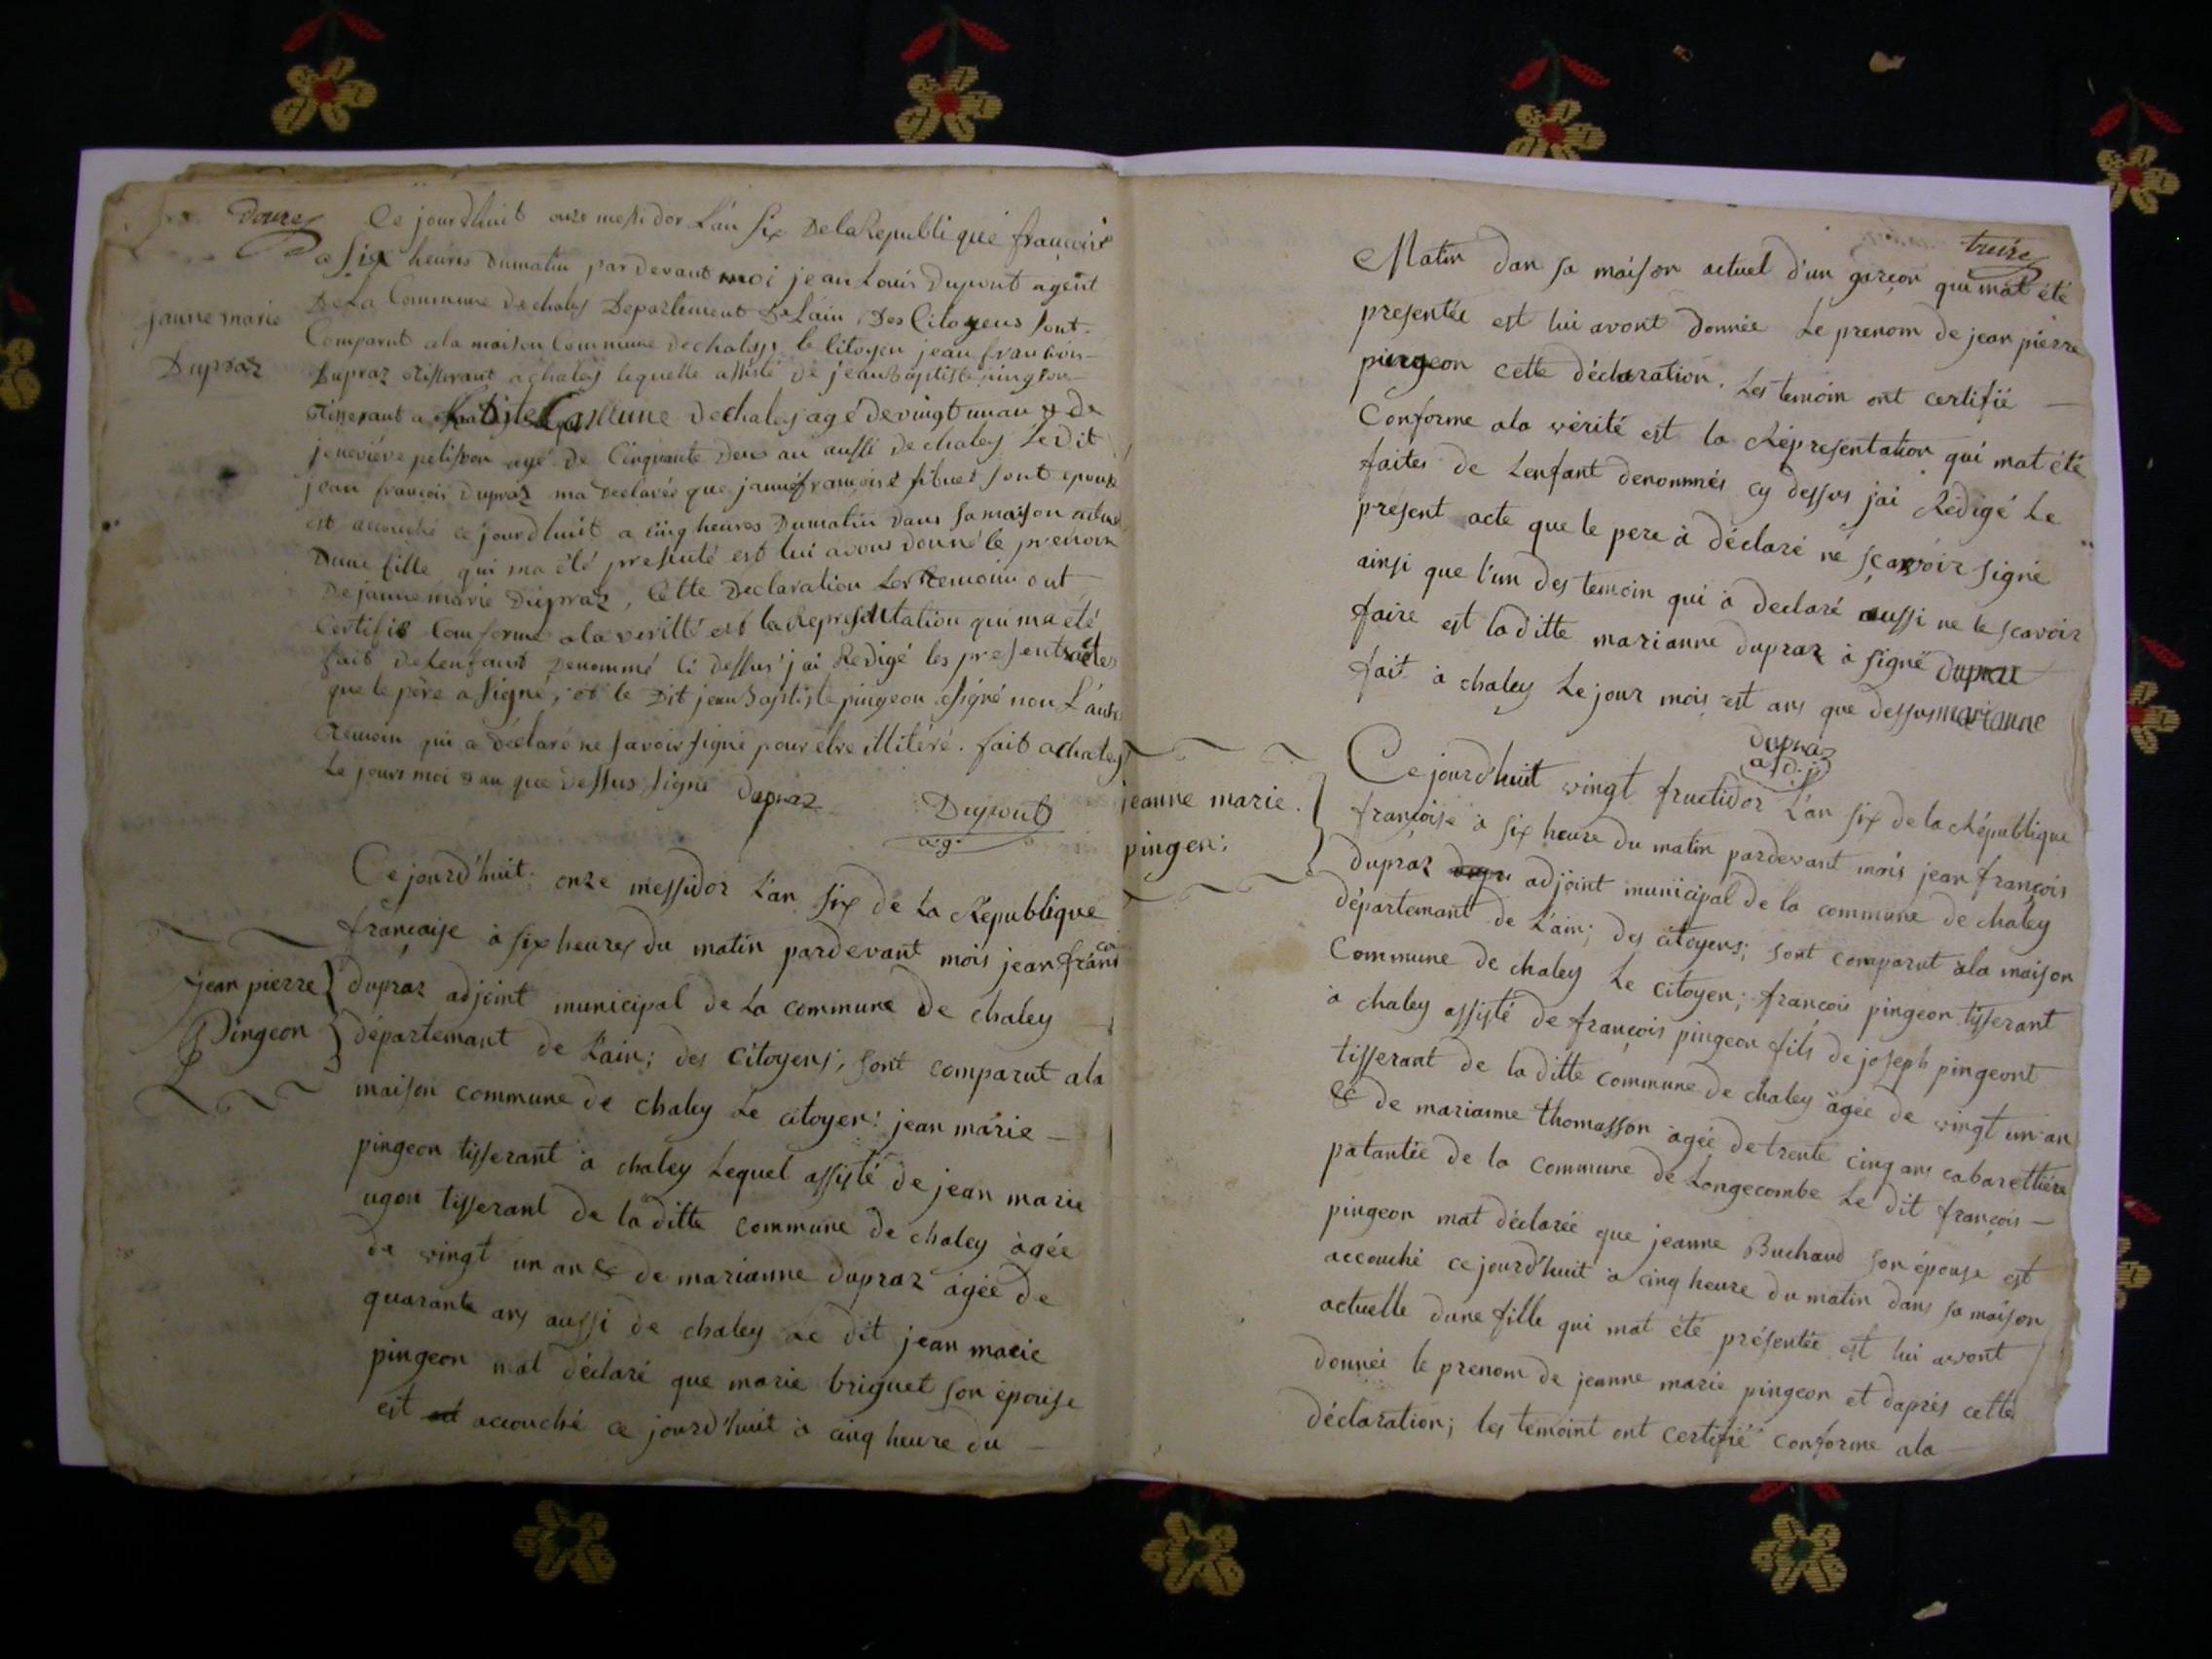 Douze
Ce jourdhuit onze messidor L'an Six De la Republique françoise
a Six heures Dumatin pardevant moi jean Louis Dupont agent
De La Commune de chaley Departement De Lain, Des Citoyens sont
Comparut ala maison Commune de chaley, le citoyen jean françois
Dupraz tisserant a chaley lequelle assisté de jean baptiste pingeon
tisserant a Commune de chaley agé de vingt un an & de
jeneviéve pelisson agé de Cinquante Deus an aussi de chaley Le Dit
jean françois Dupraz ma Declarée que janne françoise sibuet sont epouse
est accouché ce jourdhuit a cinq heures Dumatin Dans sa maison
Dune fille qui ma été presenté est lui avons donné le prenom
De janne marie Dupraz, Cette Declaration Les temoins ont
Certifié Conforme ala veritté est la Representation qui ma été
fait de Lenfant Denommé Ci dessus j'ai Redigé les present actes
que le père a Signé, et le Dit jean baptiste pingeon a signé non L'autre
temoin qui a déclaré ne savoir signé pour être illitéré. fait a chaley
Le jours moi & an que Dessus signé Dupraz
Dupont
ag.
janne marie
Dupraz
Ce jourd'huit onze messidor L'an Six de La République
françaisse à six heures du matin pardevant mois jean françoi
dupraz adjoint municipal de La commune de chaley
départemant de L'ain; des citoyens, sont comparut ala
maison commune de chaley Le citoyen: jean marie
pingeon tisserant à chaley Lequel assisté de jean marie
ugon tisserant de la ditte commune de chaley àgée
de vingt un an & de marianne dupraz àgée de
quarante ans aussi de chaley Le dit jean marie
pingeon mat déclaré que marie briguet son épouse
est accouché ce jourd'huit à cinq heure du
jean pierre
Pingeon
treize
Matin dan sa maison actuel d'un garçon qui mat été
presentée est lui avont donnée Le prenom de jean pierre
pingeon cette déclaration. Les temoin ont certifié
Conforme ala vérité est la Représentation qui mat été
faites de Lenfant denommés cy dessus jai Redigé Le
present acte que le pere à déclaré ne sçavoir signé
ainsi que l'un des temoin qui à declaré aussi ne le scavoir
faire est la ditte marianne dupraz à signé dupraz
fait à chaley Le jour mois est ans que dessus marianne
dupraz
adj.
Ce jourd'huit vingt fructidor L'an six de la République
françoise à six heure du matin pardevant mois jean françois
dupraz adjoint municipal de la commune de chaley
départemant de L'ain; des citoyens; sont comparut àla maison
Commune de chaley Le citoyen; françois pingeon tisserant
à chaley assisté de françois pingeon fils de joseph pingeont
tisserant de la ditte commune de chaley àgée de vingt un an
& de marianne thomasson àgée de trente cinq ans cabarettiére
patantée de la commune de Longecombe Le dit françois
pingeon mat déclarée que jeanne Buchaud son épouse est
accouché ce jourd'huit à cinq heure du matin dans sa maison
actuelle dune fille qui mat été présentée est lui avont
donnée le prenom de jeanne marie pingeon et daprés cette
déclaration; les temoint ont certifié conforme ala
jeanne marie
pingen: